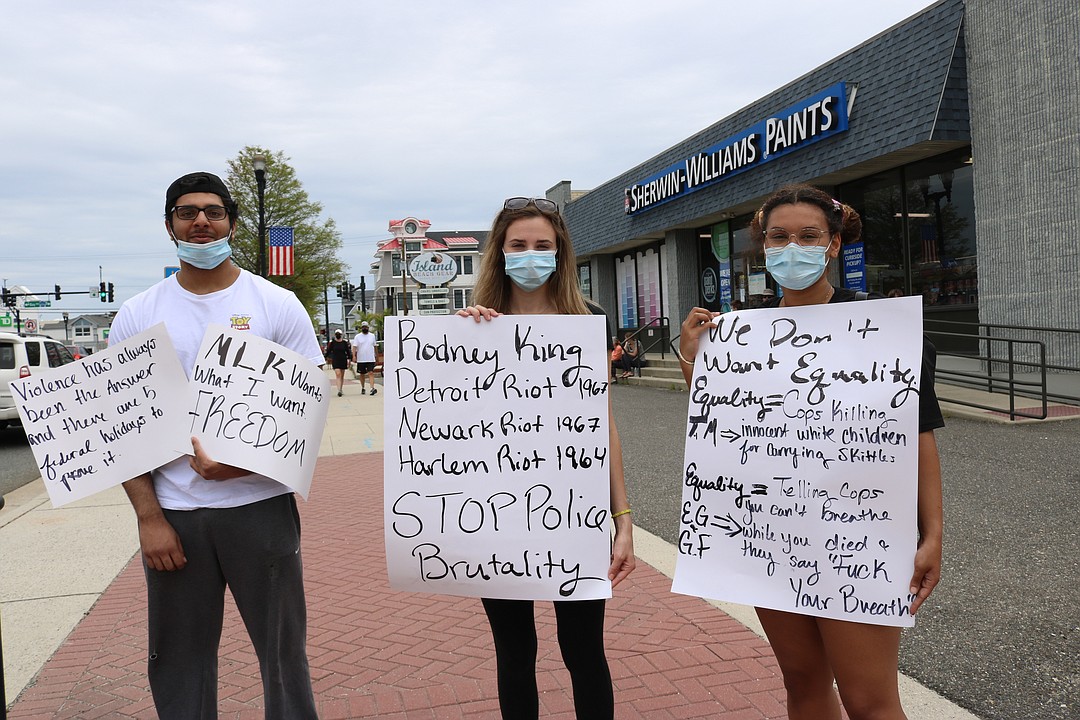 Violence has always
been the Answer
and there are 5
federal holidays to
prove it.
MLK Wants
What I want
FREEDOM
TOY
STORY
Rodney King
Detroit Riot 1967
Newark Riot 1967
Harlem Riot 1964
STOP Police
Brutality
We Don't
Want Equality.
Equality = Cops Killing
T.M → innocent white children
for carrying Skittles.
Equality = Telling Cops
you can't breathe
E.G → while you died &
G.F they say "Fuck
Your Breath"
SHERWIN-WILLIAMS PAINTS
Island
BEACH GEAR
READY FOR
CURBSIDE
PICKUP